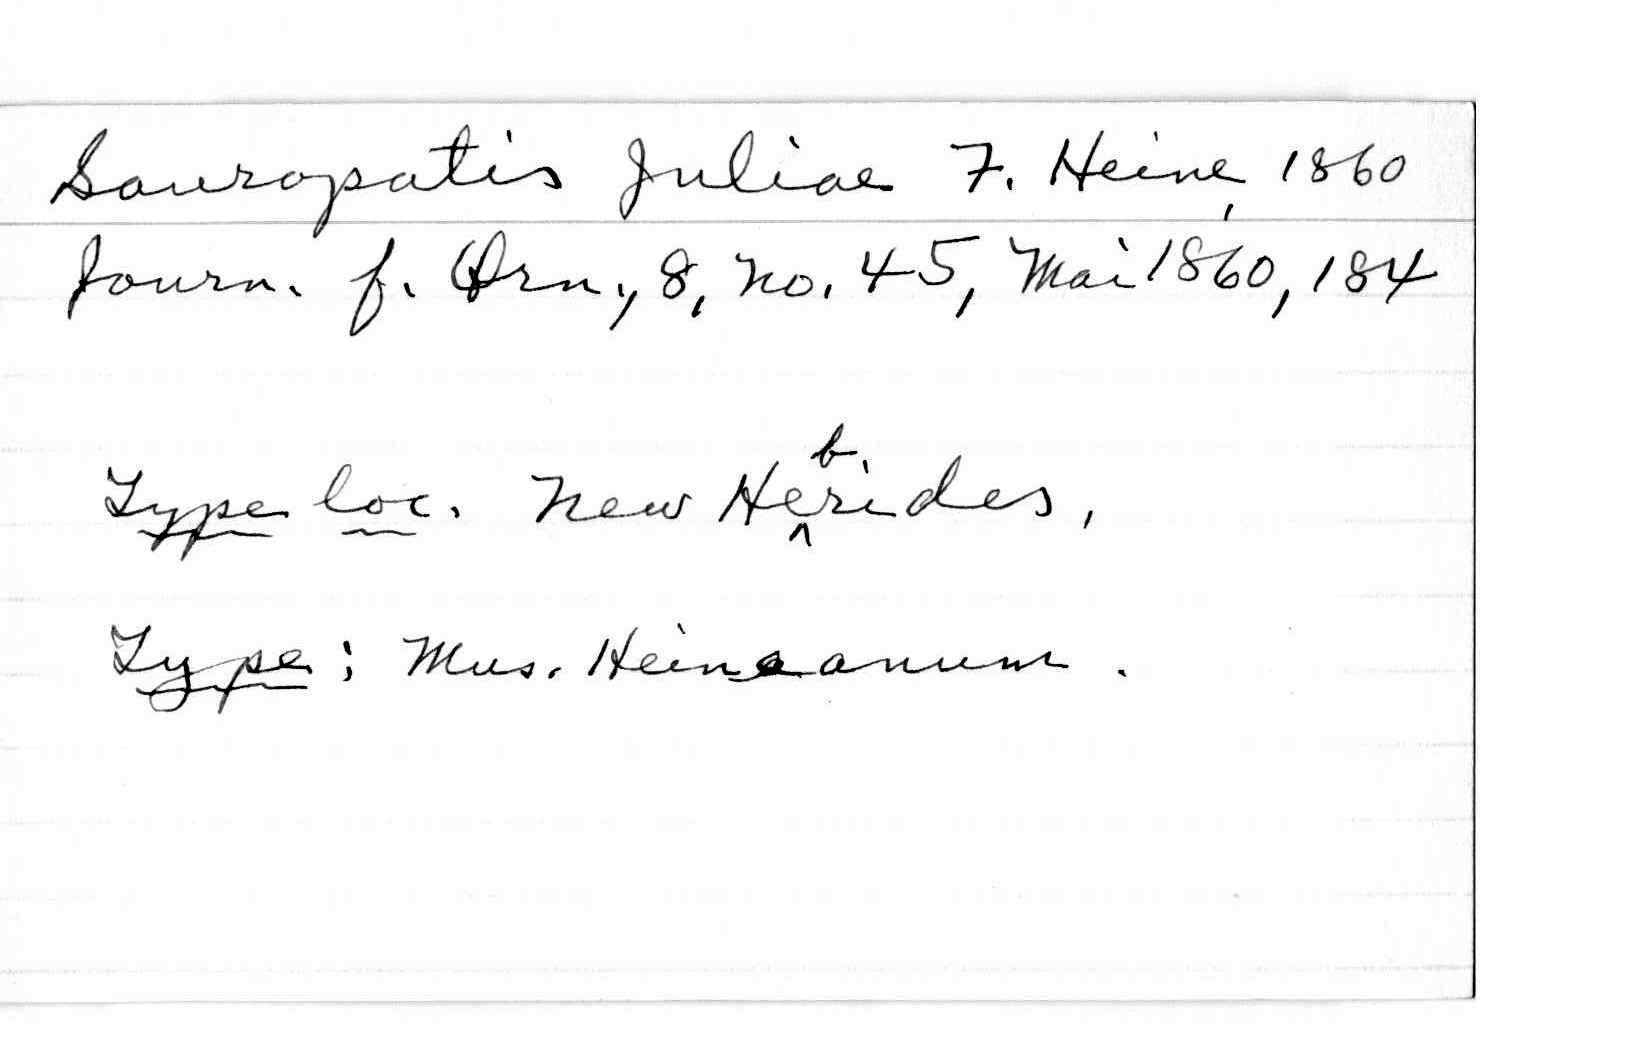 Sauropatis Juliae F. Heine, 1860
Journ. f. Orn., 8, no. 45, Mai 1860, 184
Type loc. New Hebrides.
Type: Mus. Heineanum.